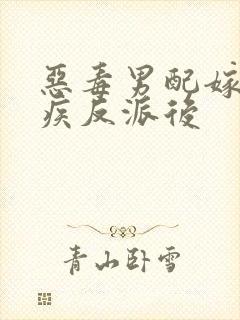 惡毒男配嫁
疾反派後
青山卧雪